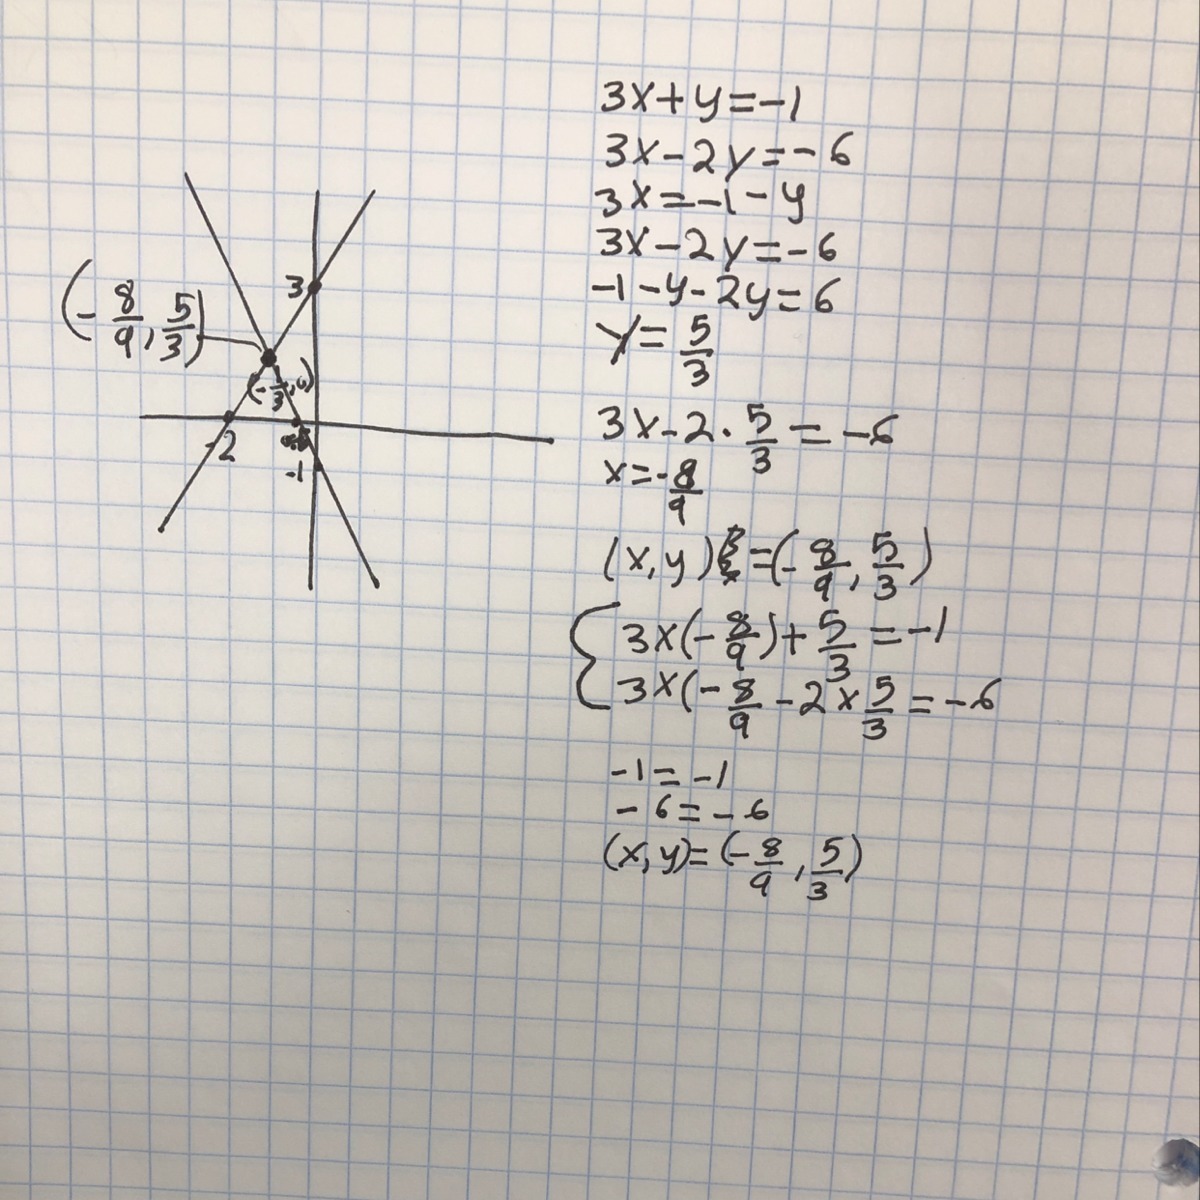 3x+y=-1
3x-2y=-6
3x=-1-y
3x-2y=-6
-1-y-2y=6
y=5/3
3x-2·5/3=-6
x=-8/9
(x,y)=(-8/9,5/3)
{3x(-8/9)+5/3=-1
3x(-8/9-2x5/3=-6
-1=-1
-6=-6
(x,y)=(-8/9,5/3)
3
(-8/9,5/3)
-2
-1